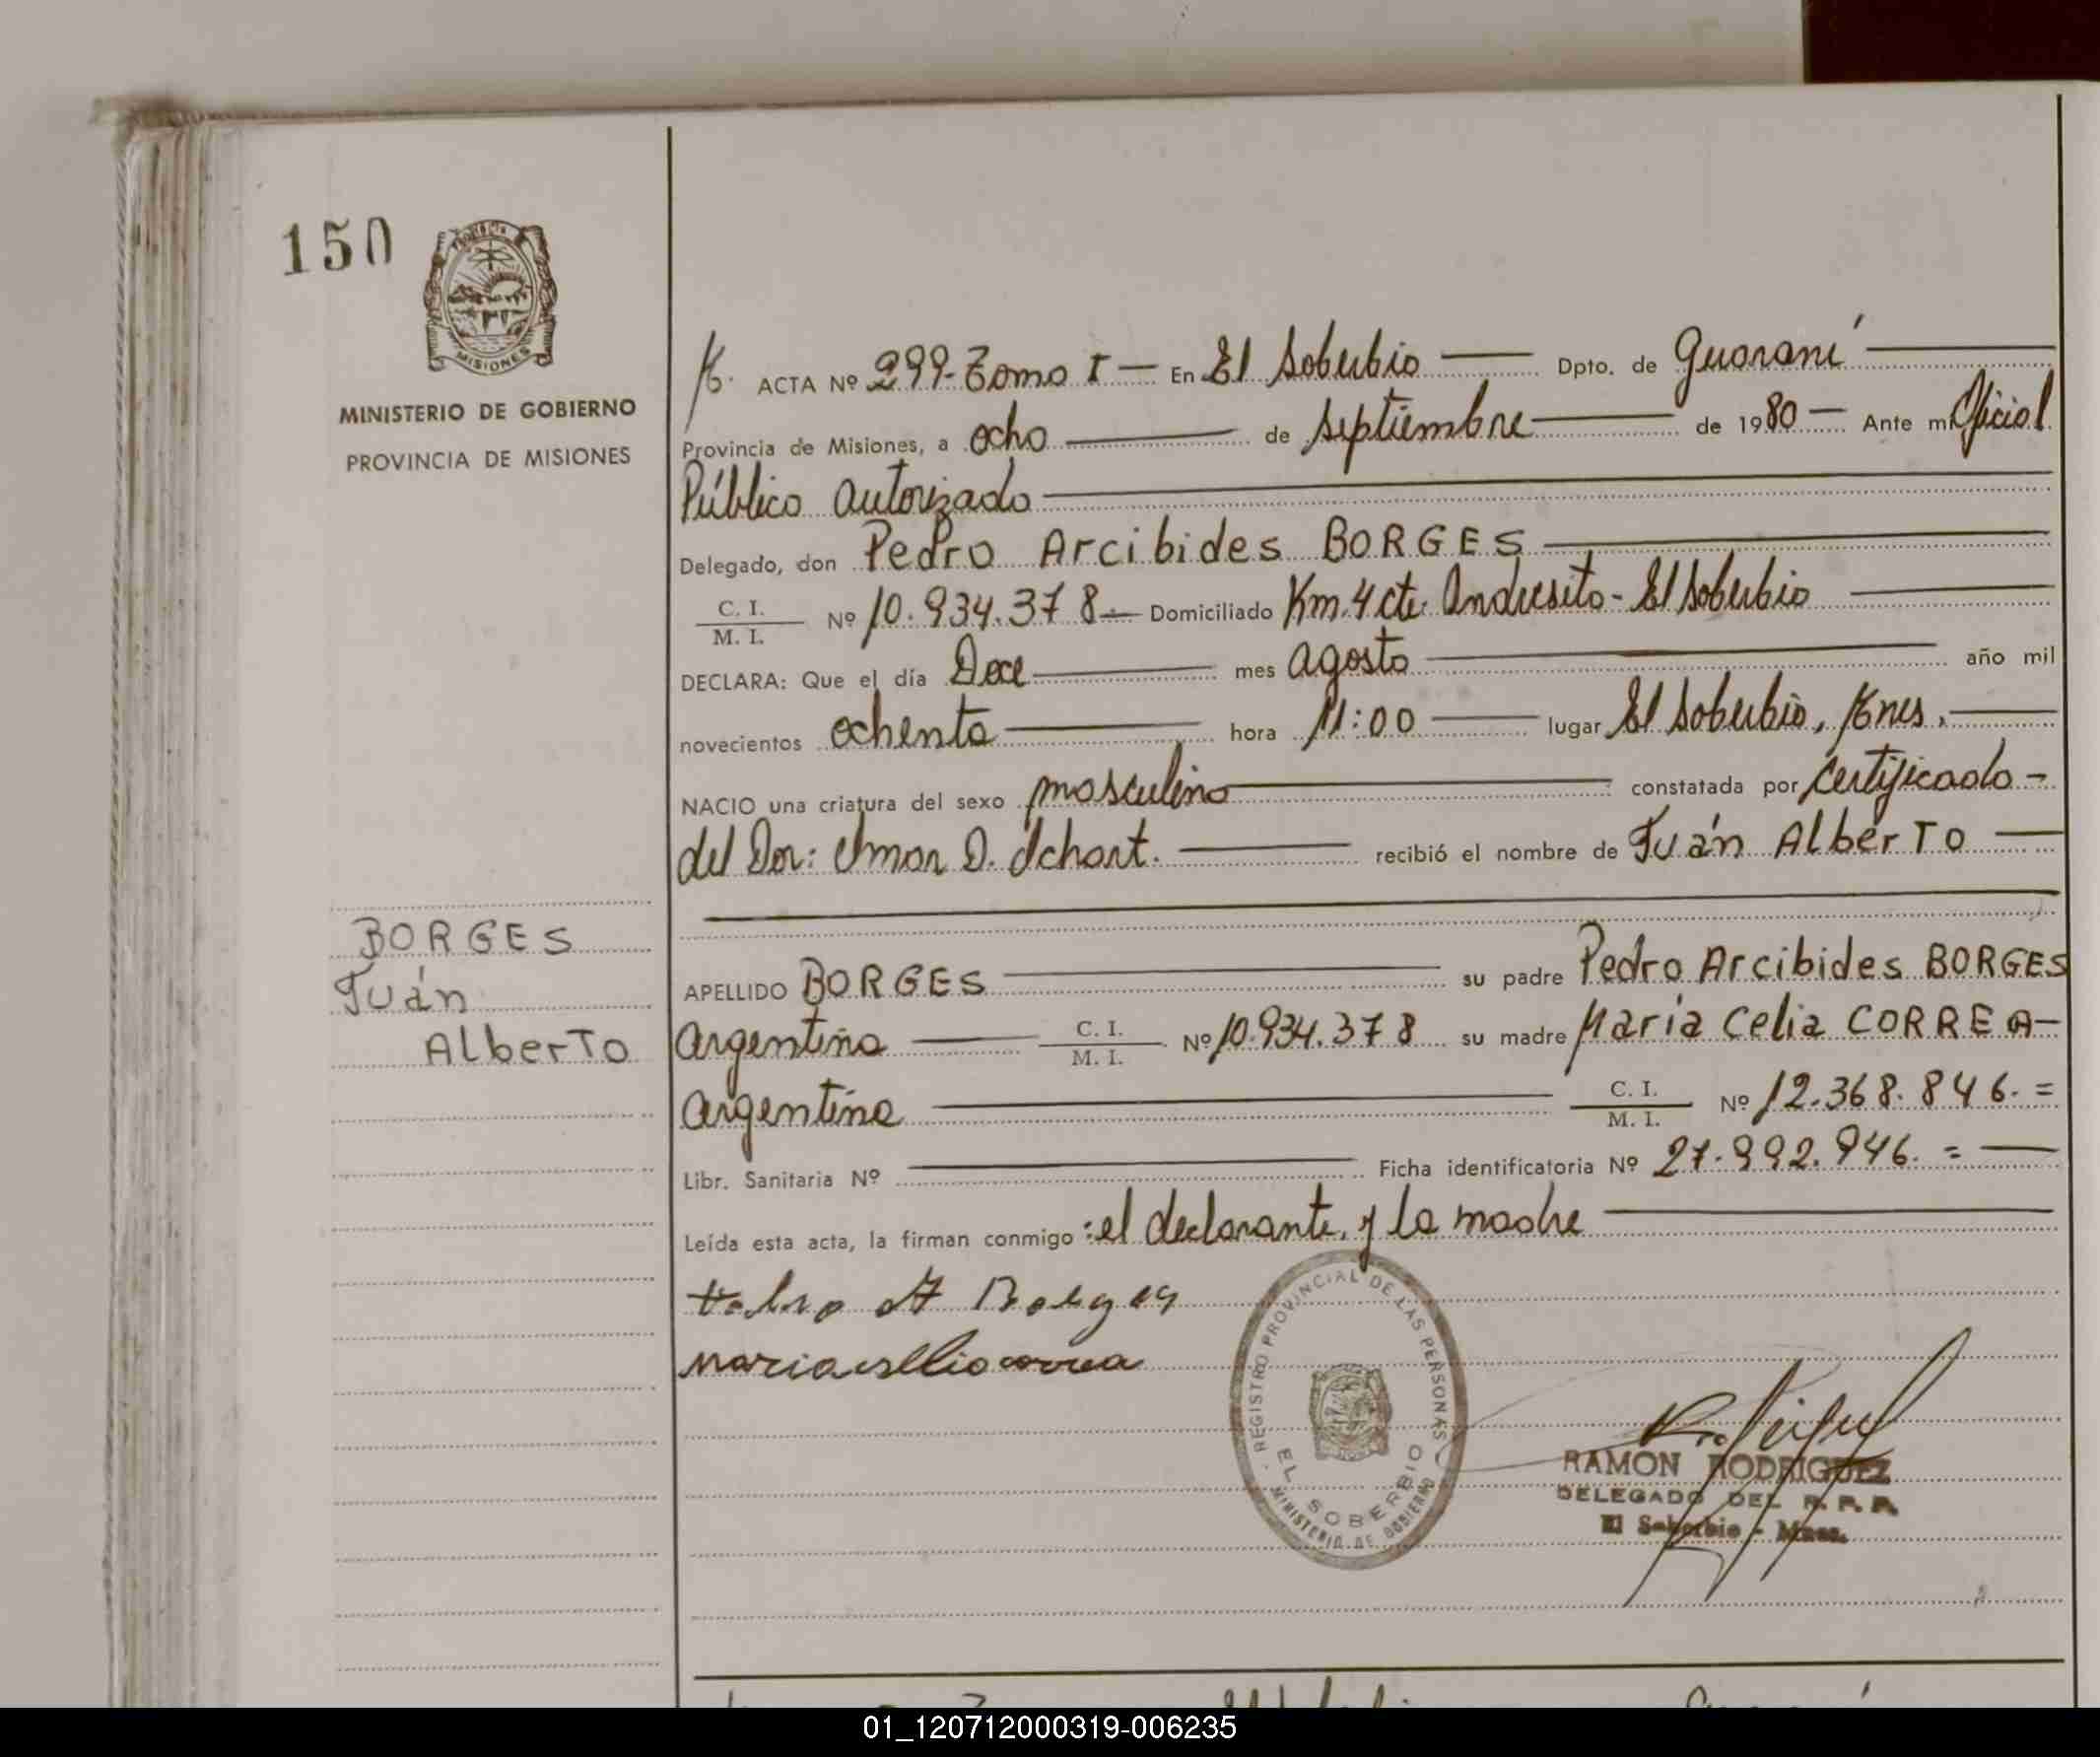 150
MISIONES
MINISTERIO DE GOBIERNO
PROVINCIA DE MISIONES
ACTA Nº 299-Tomo I — En El Soberbio — Dpto. de Guaraní —
Provincia de Misiones, a ocho — de septiembre — de 1980 — Ante mí Oficial
Público autorizado —
Delegado, don Pedro Arcibides BORGES —
C. I. / M. I. Nº 10.934.378 — Domiciliado Km. 4 cte. Andresito - El Soberbio —
DECLARA: Que el día Doce — mes agosto — año mil
novecientos ochenta — hora 11:00 — lugar El Soberbio, Mnes, —
NACIO una criatura del sexo masculino — constatada por certificado -
del Dor: Omar D. Ichart. — recibió el nombre de Juán Alberto —
BORGES
Juán
Alberto
APELLIDO BORGES — su padre Pedro Arcibides BORGES
argentino — C. I. / M. I. Nº 10.934.378 su madre María Celia CORREA —
argentina — C. I. / M. I. Nº 12.368.846. =
Libr. Sanitaria Nº — Ficha identificatoria Nº 27.992.946. = —
Leída esta acta, la firman conmigo: el declarante, y la madre —
Pedro A Borges
maria cellia correa
REGISTRO PROVINCIAL DE LAS PERSONAS
EL SOBERBIO
MINISTERIO DE GOBIERNO
RAMON RODRIGUEZ
DELEGADO DEL R. P. P.
El Soberbio - Mnes.
01_120712000319-006235